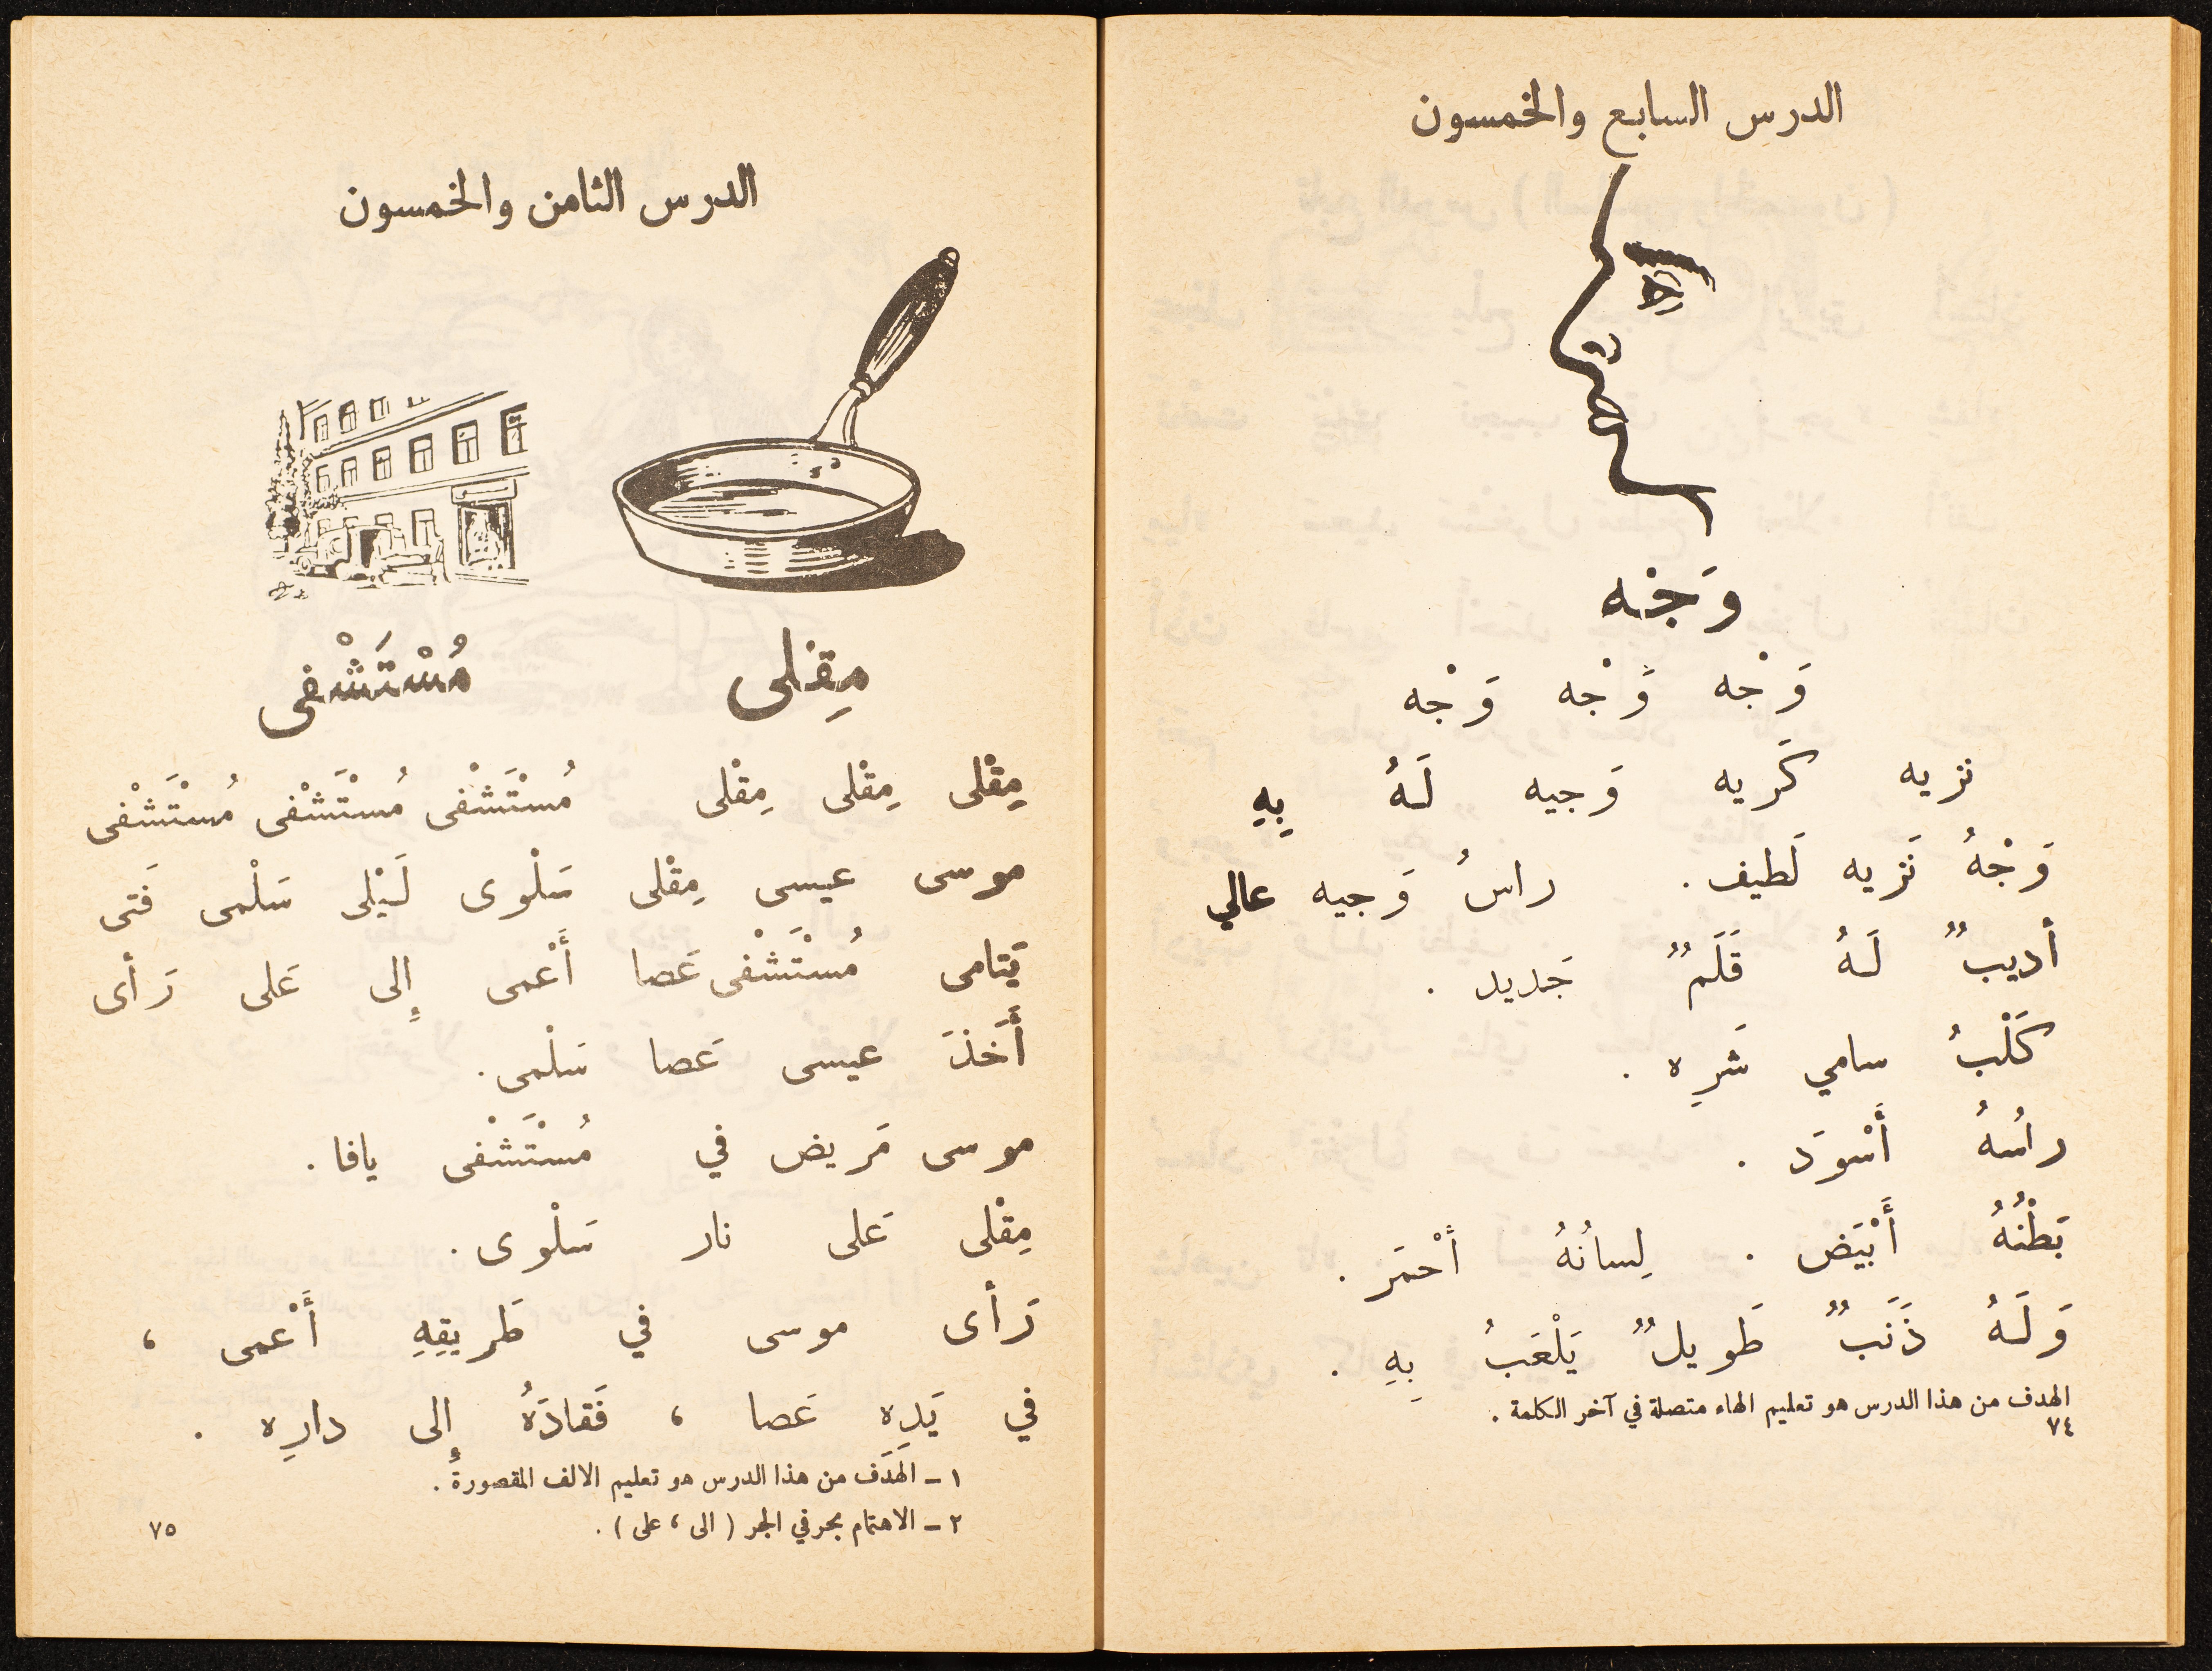 الدرس السابع والخمسون
وَجْه
وَجْه وَجْه وَجْه
نزيه كَريه وَجيه لَهُ بِهِ
وَجْهُ نَزيه لَطيف . راسُ وَجيه عالي
أديبٌ لَهُ قَلَمٌ جَديد .
كَلْبُ سامي شَرِه .
راسُهُ أَسْوَد .
بَطْنُهُ أَبْيَض . لِسانُهُ أحْمَر .
وَلَهُ ذَنَبٌ طَويلٌ يَلْعَبُ بِهِ .
الهدف من هذا الدرس هو تعليم الهاء متصلة في آخر الكلمة .
٧٤
الدرس الثامن والخمسون
مِقْلى مُسْتَشْفى
مِقْلى مِقْلى مِقْلى مُسْتَشْفى مُسْتَشْفى مُسْتَشْفى
موسى عيسى مِقْلى سَلْوى لَيْلى سَلْمى فَتى
يَتامى مُسْتَشْفى عَصا أَعْمى إِلى عَلى رَأى
أَخَذَ عيسى عَصا سَلْمى .
موسى مَريض في مُسْتَشْفى يافا .
مِقْلى عَلى نار سَلْوى .
رَأى موسى في طَريقِهِ أَعْمى ،
في يَدِهِ عَصا ، فَقادَهُ إِلى دارِه .
١ - الهَدَف من هذا الدرس هو تعليم الالف المقصورة .
٢ - الاهتمام بحرفي الجر ( الى ، على ) .
٧٥